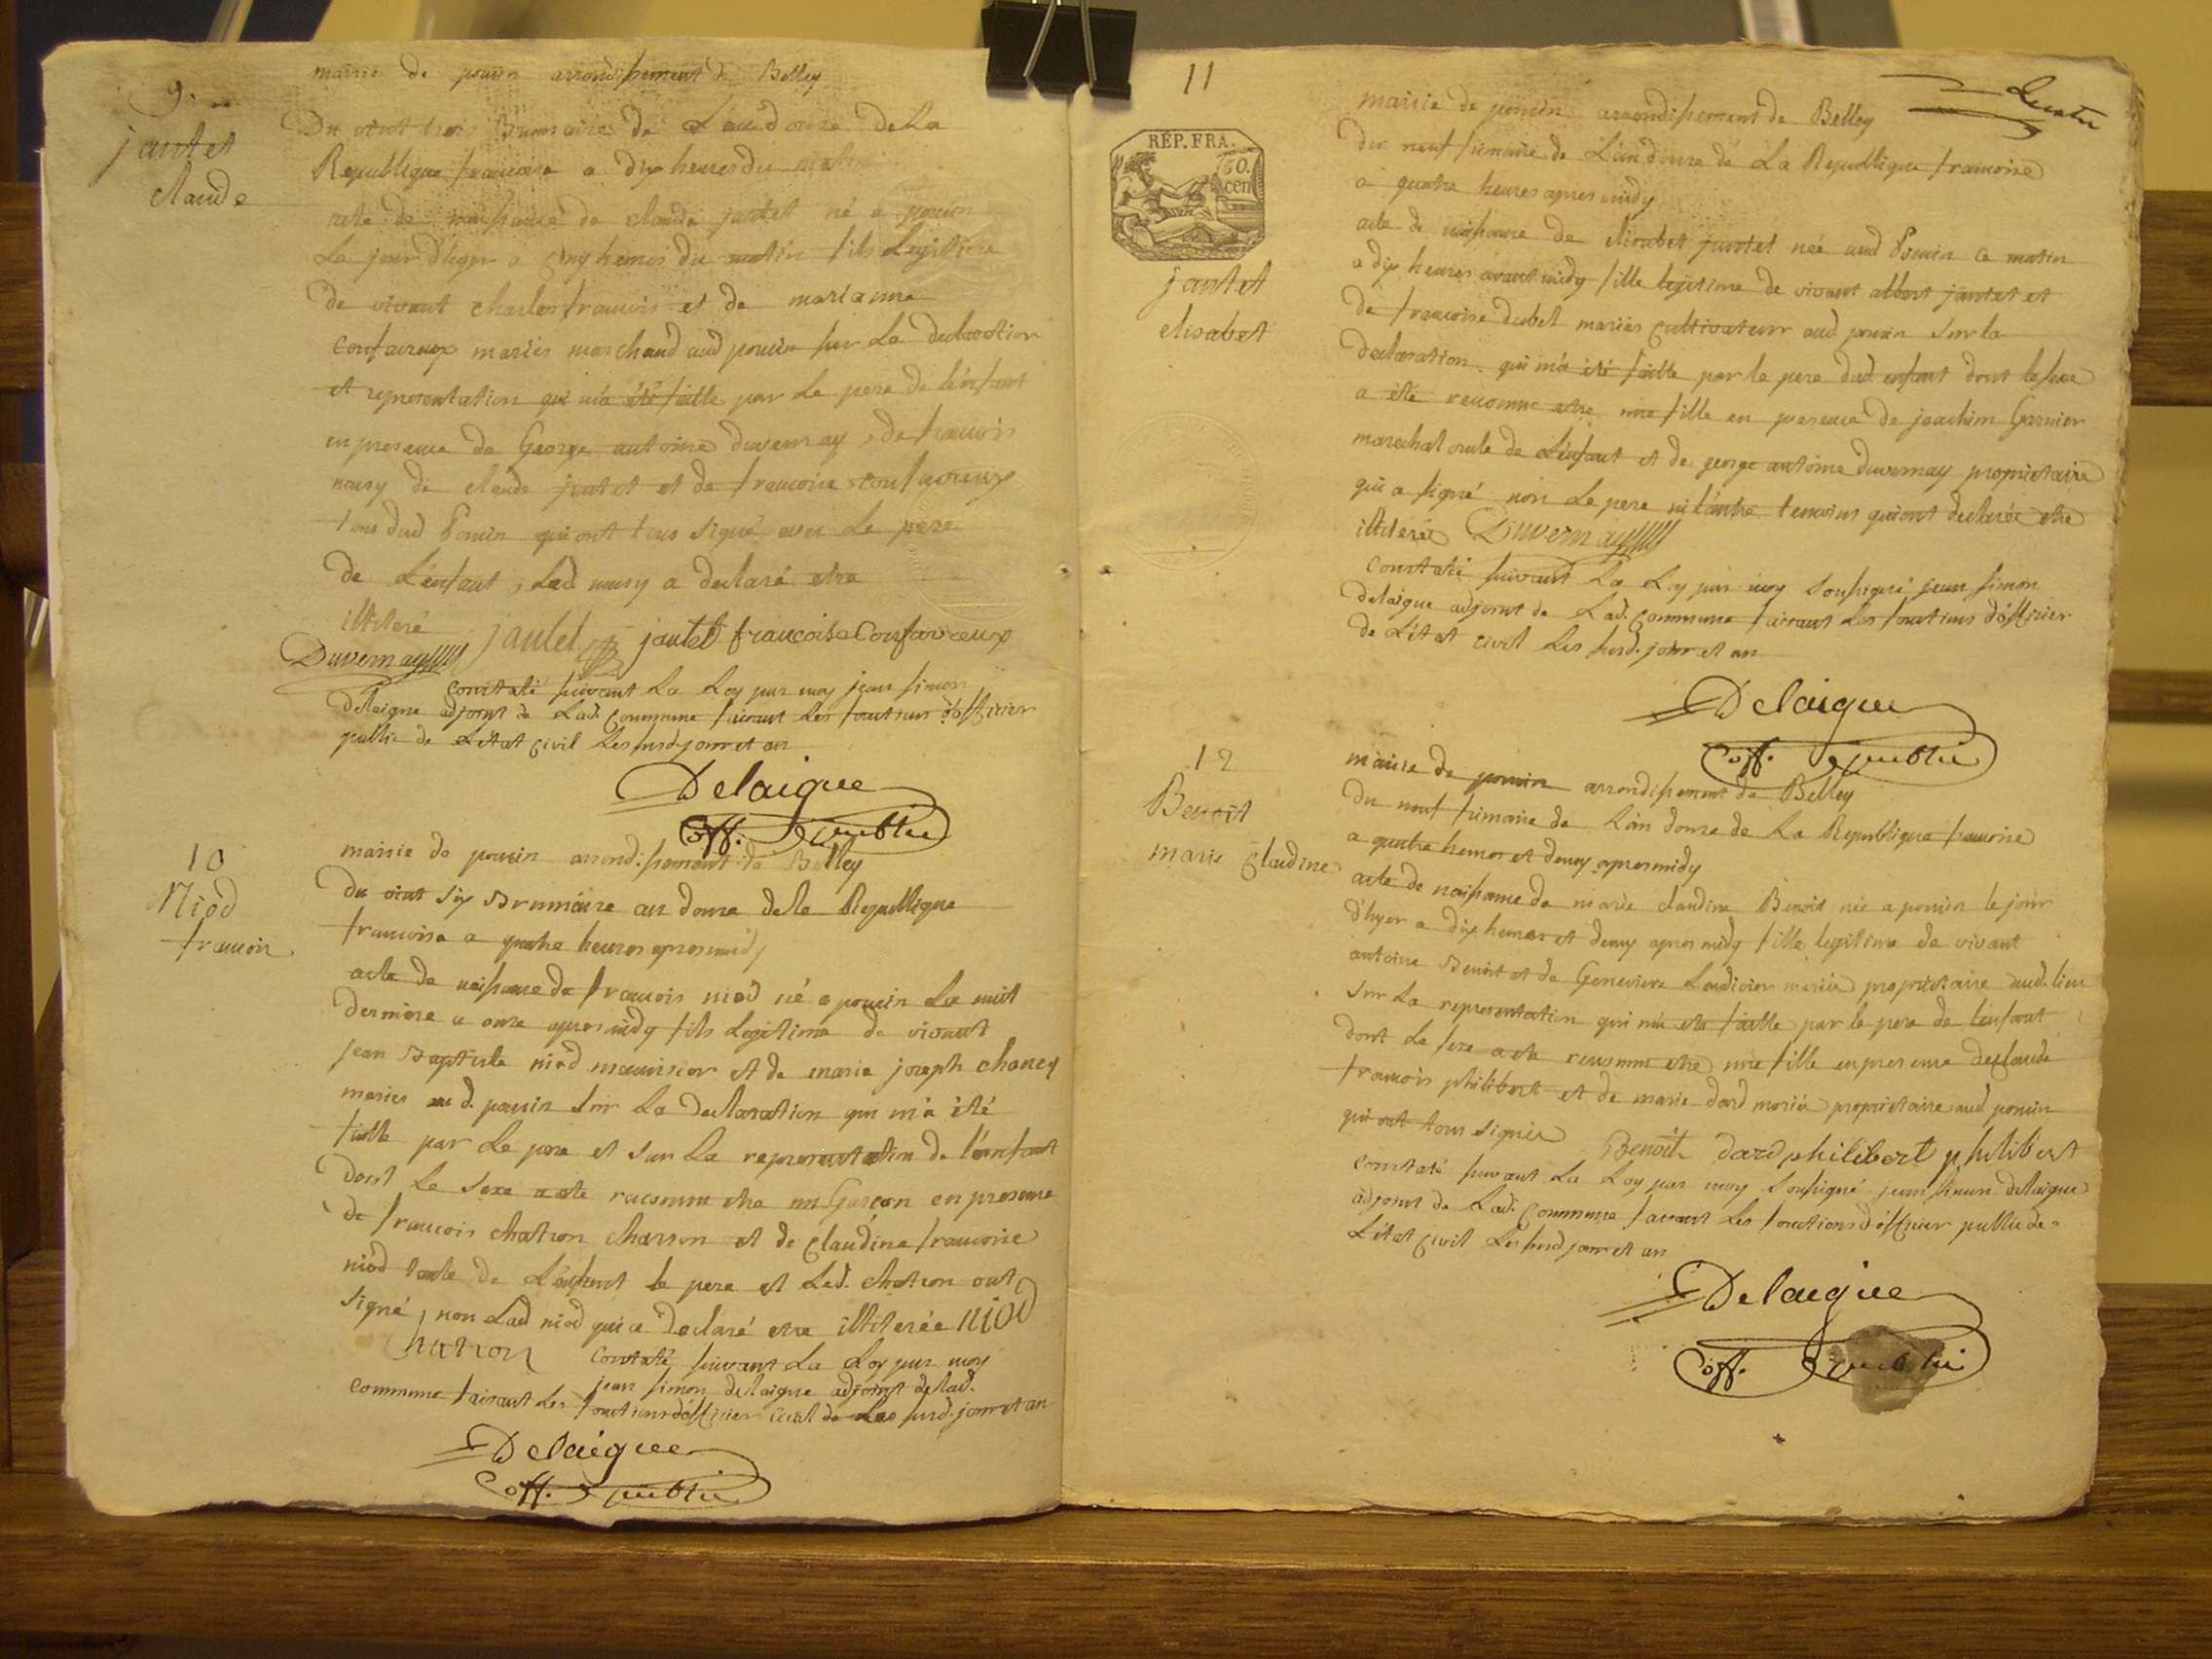 9.
jantet
claude
mairie de poncin arrondissement de Belley
Du vint trois Brumaire de L'an douze de La
Republique francoise a dix heures du matin
acte de naissance de claude jantet né a poncin
Le jour d'hyer a cinq heures du matin fils Legitime
de vivant charles francois et de marianne
confavreux mariés marchand aud poncin sur La declaration
et representation qui m'a été faitte par Le pere de l'enfant
en presence de George antoine duvernay, de francois
musy de claude jantet et de francoise confavreux
tous dud Poncin qui ont tous signé avec Le pere
de L'enfant, Led. musy a declaré etre
illiteré jantet jantet francoise Confavreux
Duvernay
constaté suivant La Loy par moy jean simon
delaigue adjoint de Lad. Commune faisant Les fonctions d'officier
public de L'état civil Les susd. jour et an
Delaigue
off. public
10
Niod
francois
mairie de poncin arrondissement de Belley
du vint six Brumaire an douze de la Republique
francoise a quatre heures apres midy
acte de naissance de francois niod né a poncin La nuit
derniere a onze apres midy fils Legitime de vivant
jean Baptiste niod menuisier et de marie joseph chanay
mariés aud. poncin sur La declaration qui m'a été
faitte par Le pere et sur La representation de l'enfant
dont Le sexe a ete reconnu etre un Garcon en presence
de francois chatron charron et de claudine francoise
niod tante de L'enfant le pere et Led. chatron ont
signé, non Lad niod qui a declaré etre illiterée niod
chatron constaté suivant La Loy par moy
jean simon delaigue adjoint de lad.
commune faisant Les fonctions d'officier civil de Les susd. jour et an
Delaigue
off. public
11
RÉP. FRA.
50.
cen
jantet
elisabet
mairie de poncin arrondissement de Belley
du neuf frimaire de L'an douze de La Republique francoise
a quatre heures apres midy
acte de naissance de elisabet jantet née aud Poncin ce matin
a dix heures avant midy fille legitime de vivant albert jantet et
de francoise dubet mariés cultivateur aud poncin sur la
declaration qui m'a été faitte par le pere dud. enfant dont le sexe
a été reconnu etre une fille en presence de joachim Garnier
marechal oncle de L'enfant et de george antoine duvernay proprietaire
qui a signé non Le pere ni l'autre temoins qui ont declaré etre
illiteré Duvernay
Constaté suivant La Loy par moy soussigné jean simon
delaigue adjoint de Lad. Commune faisant Les fonctions d'officier
de L'état civil Les susd. jour et an
Delaigue
off. public
12
Benoit
marie Claudine
mairie de poncin arrondissement de Belley
du neuf frimaire de L'an douze de La Republique francoise
a quatre heures et demy apres midy
acte de naissance de marie claudine Benoit née a poncin le jour
d'hyer a dix heures et demy apres midy fille legitime de vivant
antoine Benoit et de Genevieve mariés proprietaire aud. lieu
sur La representation qui m'a ete faitte par le pere de l'enfant
dont Le sexe a ete reconnu etre une fille en presence de claude
francois philibert et de marie dard mariés proprietaire aud poncin
qui ont tous signés Benoit dard philibert philibert
constaté suivant La Loy par moy soussigné jean simon delaigue
adjoint de Lad. Commune faisant Les fonctions d'officier public de
L'état civil Les susd jour et an
Delaigue
off. public